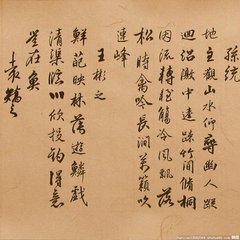 孫統
地主觀山水仰尋幽人蹤
迴沼激中逵疎竹間脩桐
因流轉輕觴冷風飄落
松時禽吟長澗萬籟吹
連峰
王彬之
鮮葩映林薄游鱗戲
清渠臨川欣投釣得意
豈在魚
袁嶠之